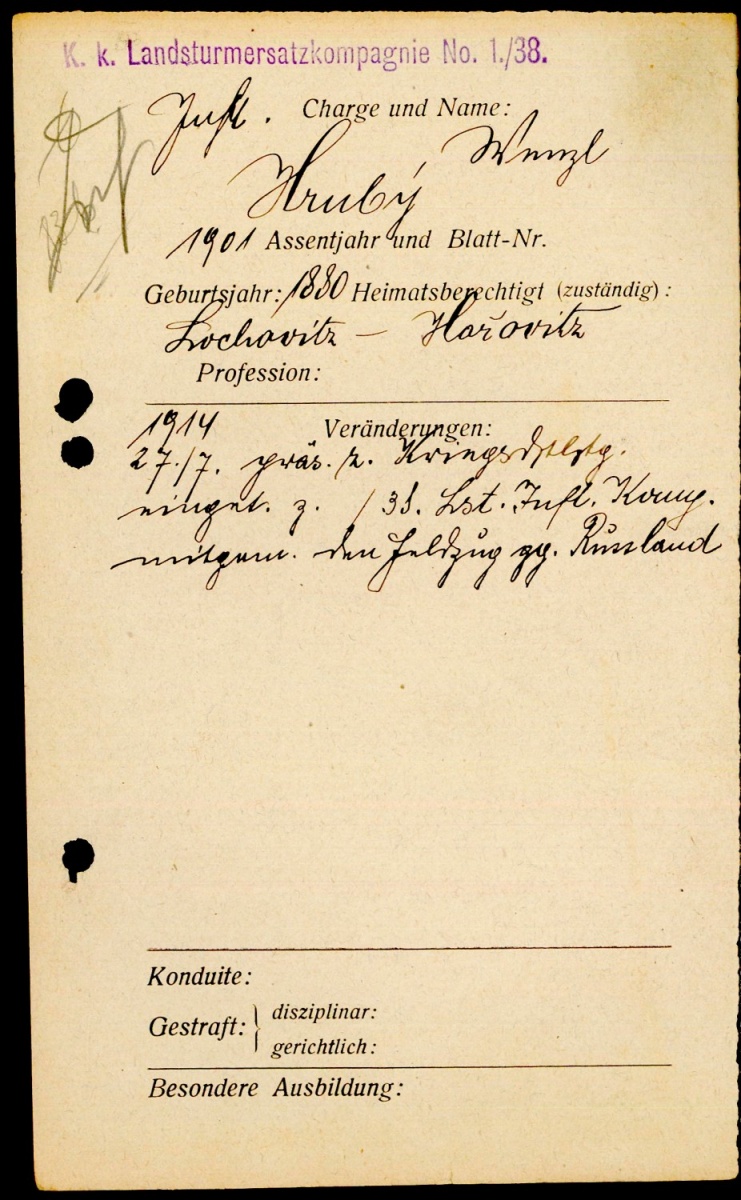 K. k. Landsturmersatzkompagnie No. 1./38.
Inft. Charge und Name:
Wenzl
Hrubý
1901 Assentjahr und Blatt-Nr.
Geburtsjahr: 1880 Heimatsberechtigt (zuständig):
Lochovitz — Hořovitz
Profession:
1914 Veränderungen:
27./7. präs. z. Kriegsdstlstg.
einget. z. / 38. Lst. Inft. Komp.
mitgem. den Feldzug gg. Russland
Konduite:
Gestraft: disziplinar:
gerichtlich:
Besondere Ausbildung: